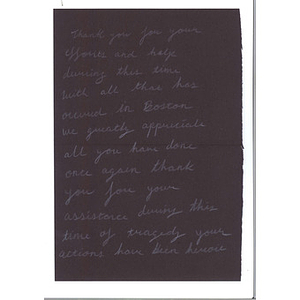 Thank you for your
efforts and help
during this time
with all that has
occured in Boston
we greatly appreciate
all you have done
once again thank
you for your
assistance during this
time of tragedy your
actions have been heroic